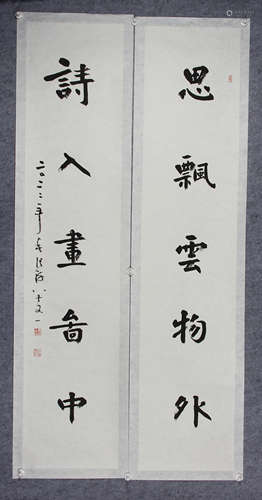 思飄雲物外
詩入畫啚中
二〇二二年
八十又一